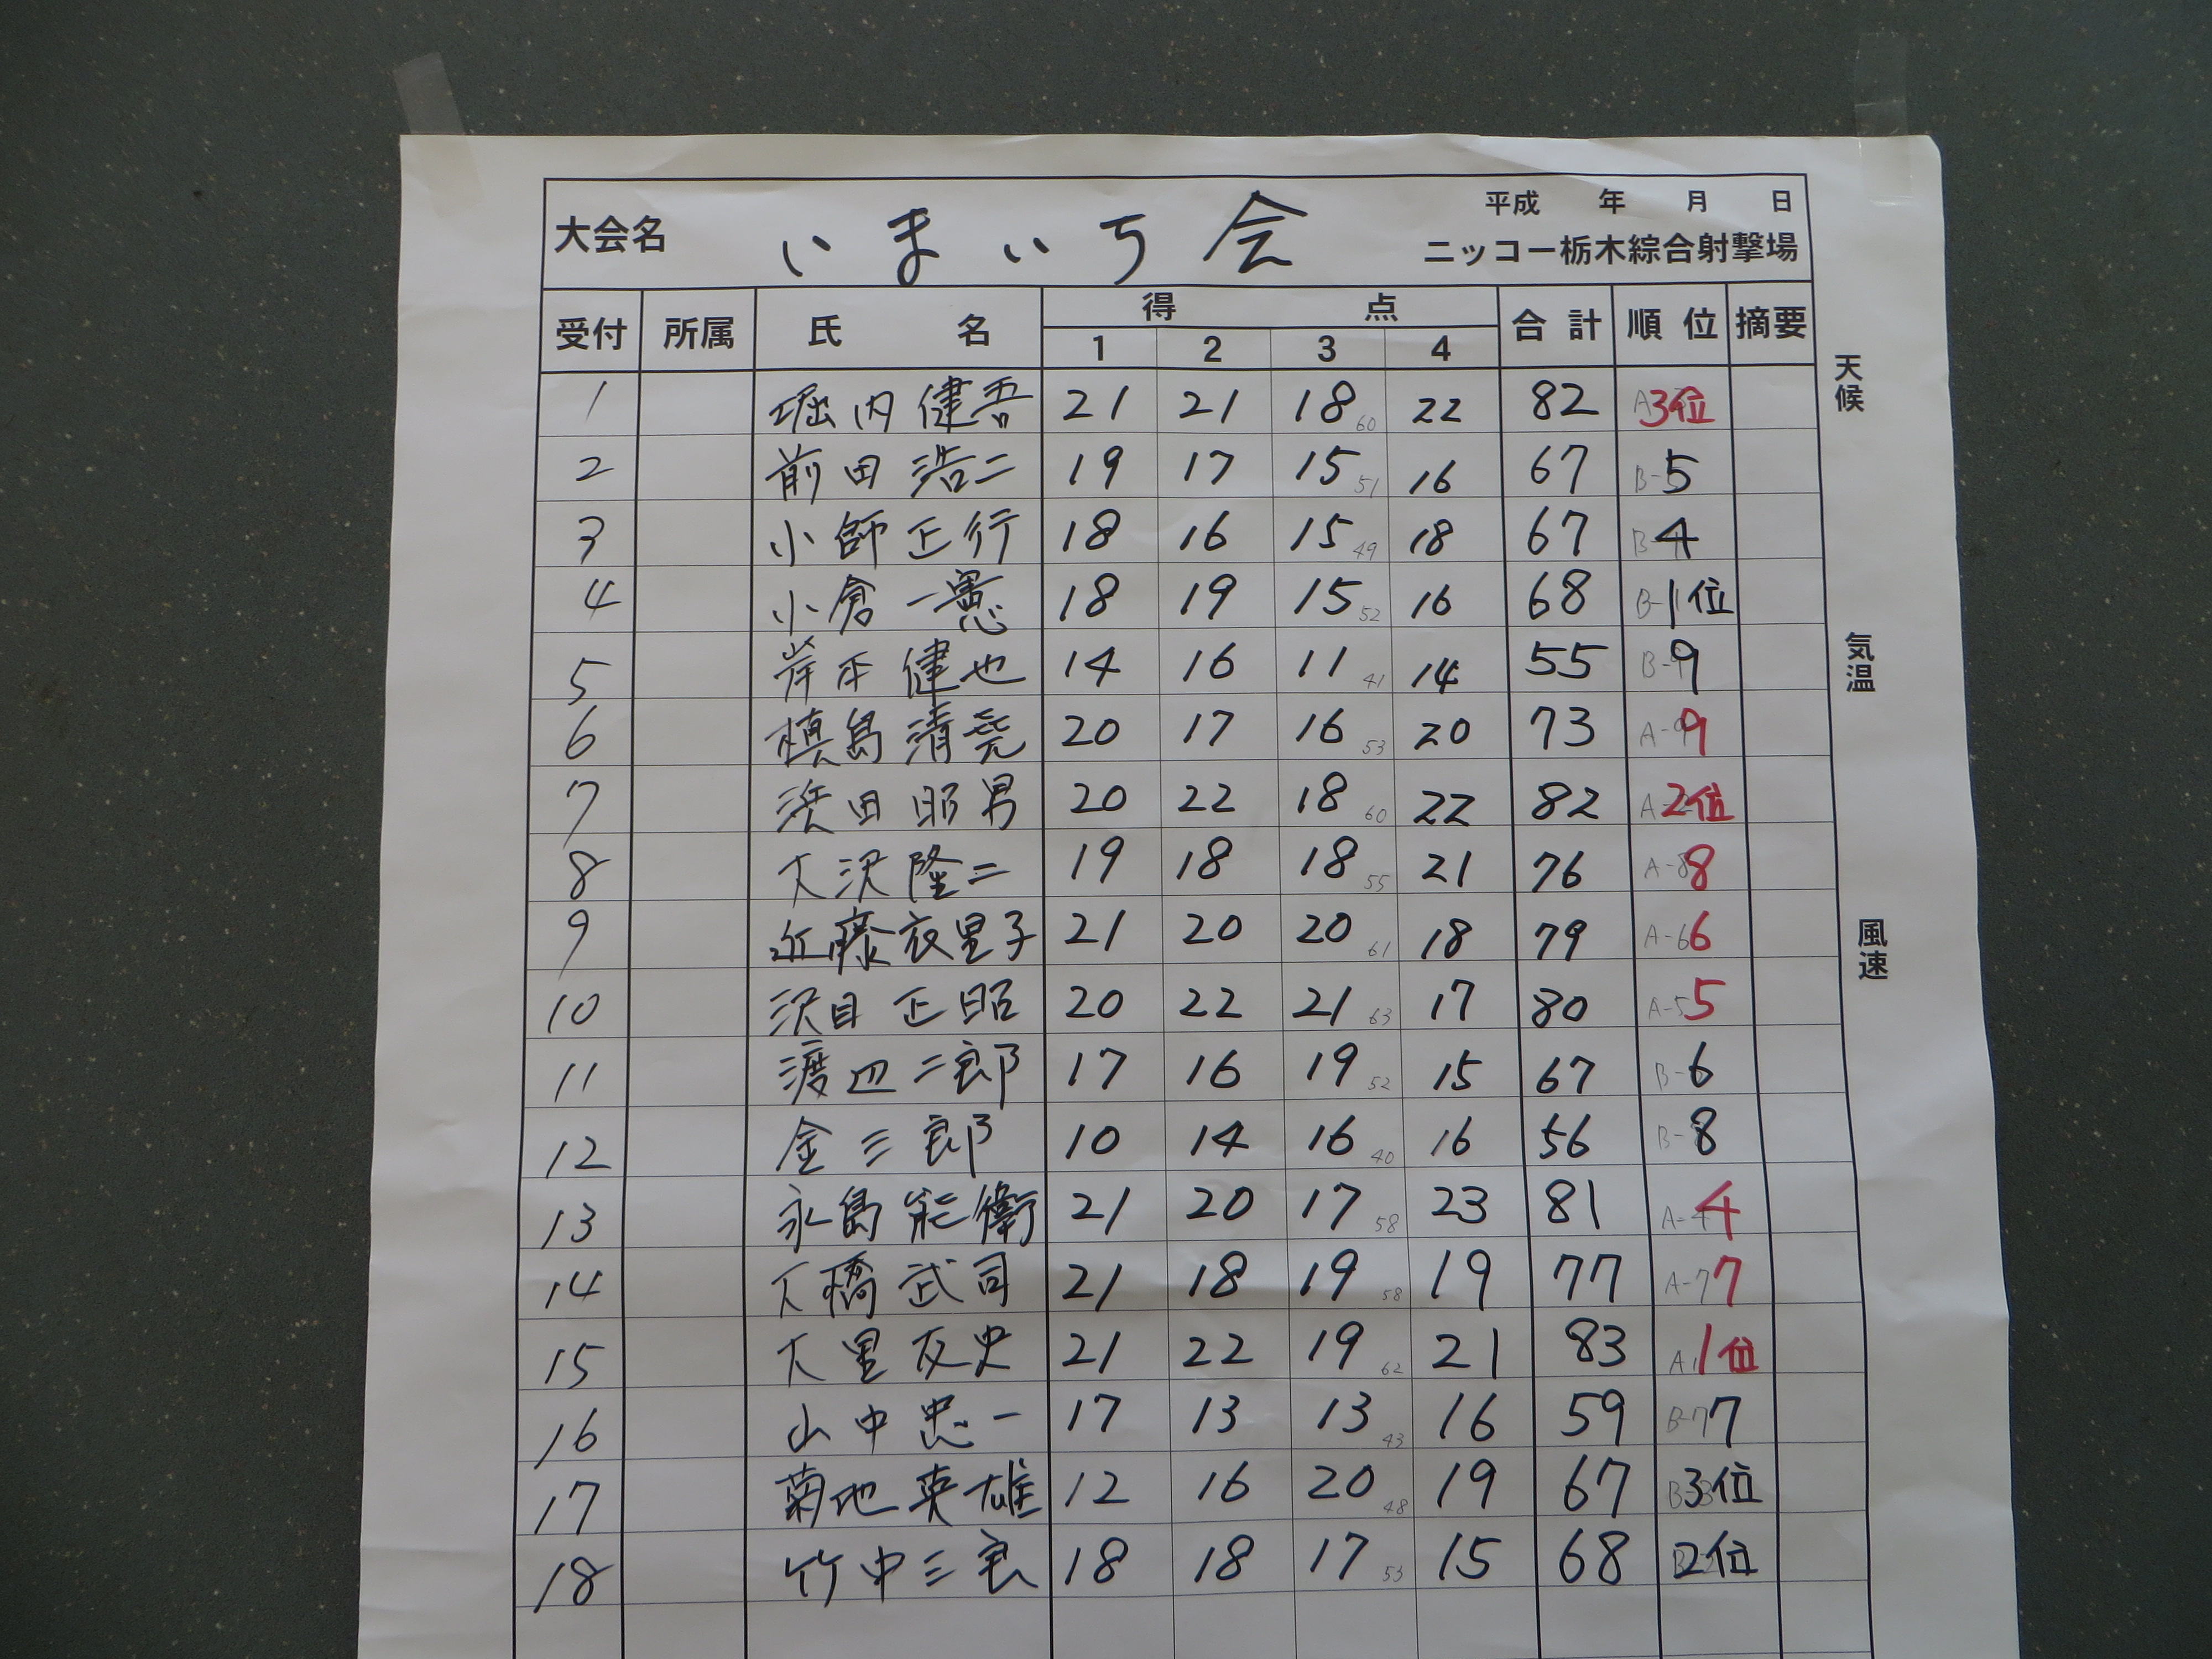 平成 年 月 日
大会名 いまいち会 ニッコー栃木綜合射撃場
受付 所属 氏名 得点 合計 順位 摘要
1 2 3 4
天候
1 堀内健吾 21 21 18 60 22 82 A3位
2 前田浩二 19 17 15 51 16 67 B-5
3 小師正行 18 16 15 49 18 67 B-4
4 小倉一憲 18 19 15 52 16 68 B-1位
気温
5 岸本健也 14 16 11 41 14 55 B-9
6 槙島清尭 20 17 16 53 20 73 A-99
7 浜田昭男 20 22 18 60 22 82 A-2位
8 大沢隆二 19 18 18 55 21 76 A-88
9 近藤衣里子 21 20 20 61 18 79 A-66
風速
10 沢目正昭 20 22 21 63 17 80 A-55
11 渡辺二郎 17 16 19 52 15 67 B-6
12 金三郎 10 14 16 40 16 56 B-8
13 永島能衛 21 20 17 58 23 81 A-44
14 大橋武司 21 18 19 58 19 77 A-77
15 大里友史 21 22 19 62 21 83 A1 1位
16 山中忠一 17 13 13 43 16 59 B-77
17 菊地英雄 12 16 20 48 19 67 B-33位
18 竹中三良 18 18 17 53 15 68 B-2位